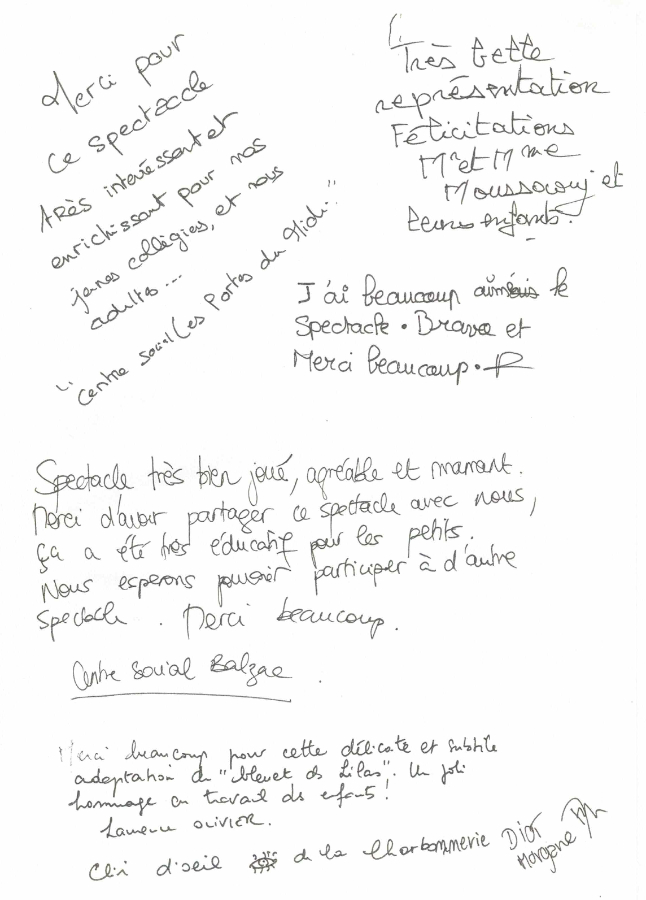 Merci pour
ce spectacle
très intéréssant et
enrichissant pour nos
jeunes collégies, et nous
adultes...
"Centre social Les Portes du Midi"
Très belle
représentation
Félicitations
Mr et Mme
et
leurs enfants.
J'ai beaucoup le
Spectacle. Bravo et
Merci beaucoup.
Spectacle très bien joué, agréable et marrant.
Merci d'avoir partager ce spectacle avec nous,
ça a été très éducatif pour les petits.
Nous esperons pouvoir participer à d'autre
spectacle. Merci beaucoup.
Centre Social Balzac.
Merci beaucoup pour cette délicate et subtile
adaptation du "bleuet des Lilas". Un joli
hommage au travail des enfants!
Laurence OLIVIER.
Clin d'oeil de la Charbonnerie
Morgane